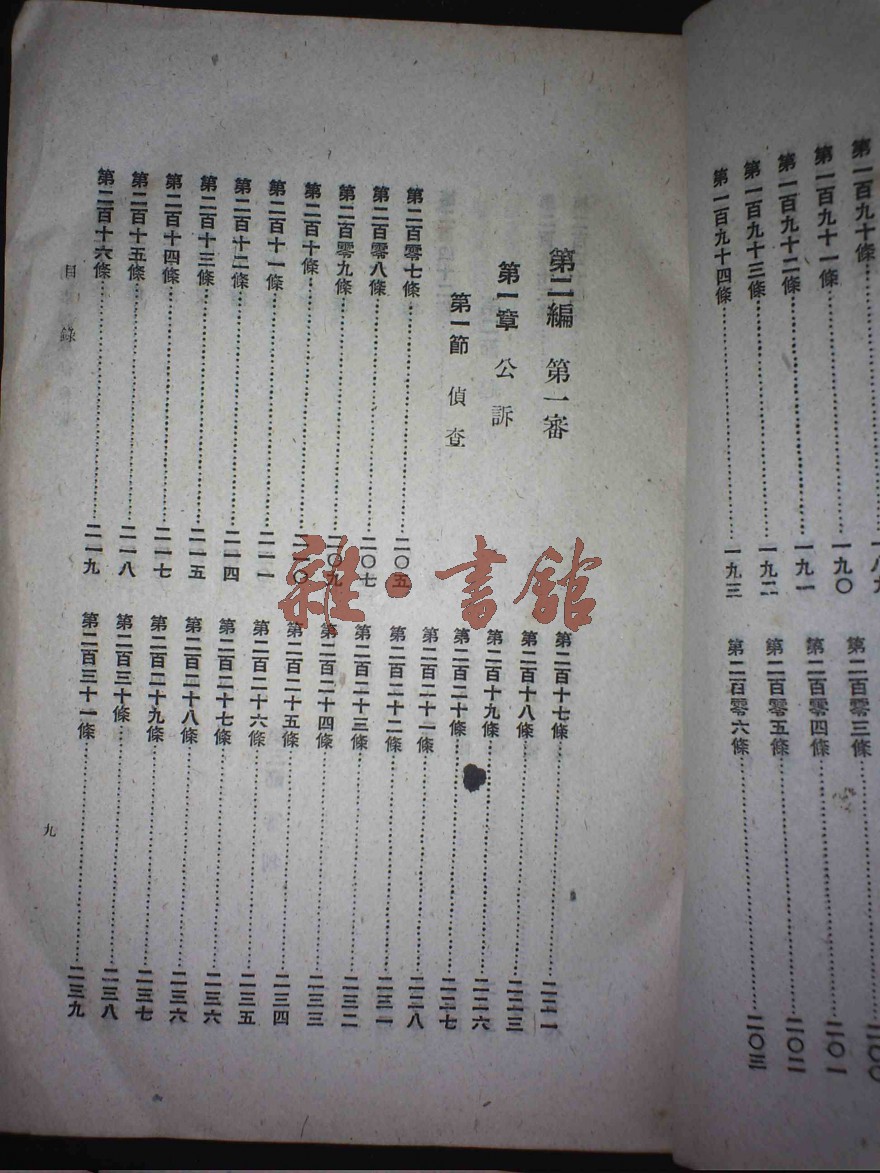 第一百九十條……一八九
第一百九十一條……一九〇
第一百九十二條……一九一
第一百九十三條……一九二
第一百九十四條……一九三
第二百零三條……二〇〇
第二百零四條……二〇一
第二百零五條……二〇二
第二百零六條……二〇三
第二編 第一審
第一章 公訴
第一節 偵查
第二百零七條……二〇五
第二百零八條……二〇七
第二百零九條……二〇九
第二百十條……二一〇
第二百十一條……二一一
第二百十二條……二一四
第二百十三條……二一五
第二百十四條……二一七
第二百十五條……二一八
第二百十六條……二一九
第二百十七條……二二一
第二百十八條……二二三
第二百十九條……二二六
第二百二十條……二二七
第二百二十一條……二二八
第二百二十二條……二三一
第二百二十三條……二三二
第二百二十四條……二三三
第二百二十五條……二三四
第二百二十六條……二三五
第二百二十七條……二三六
第二百二十八條……二三六
第二百二十九條……二三七
第二百三十條……二三八
第二百三十一條……二三九
目錄
九
雜·書館